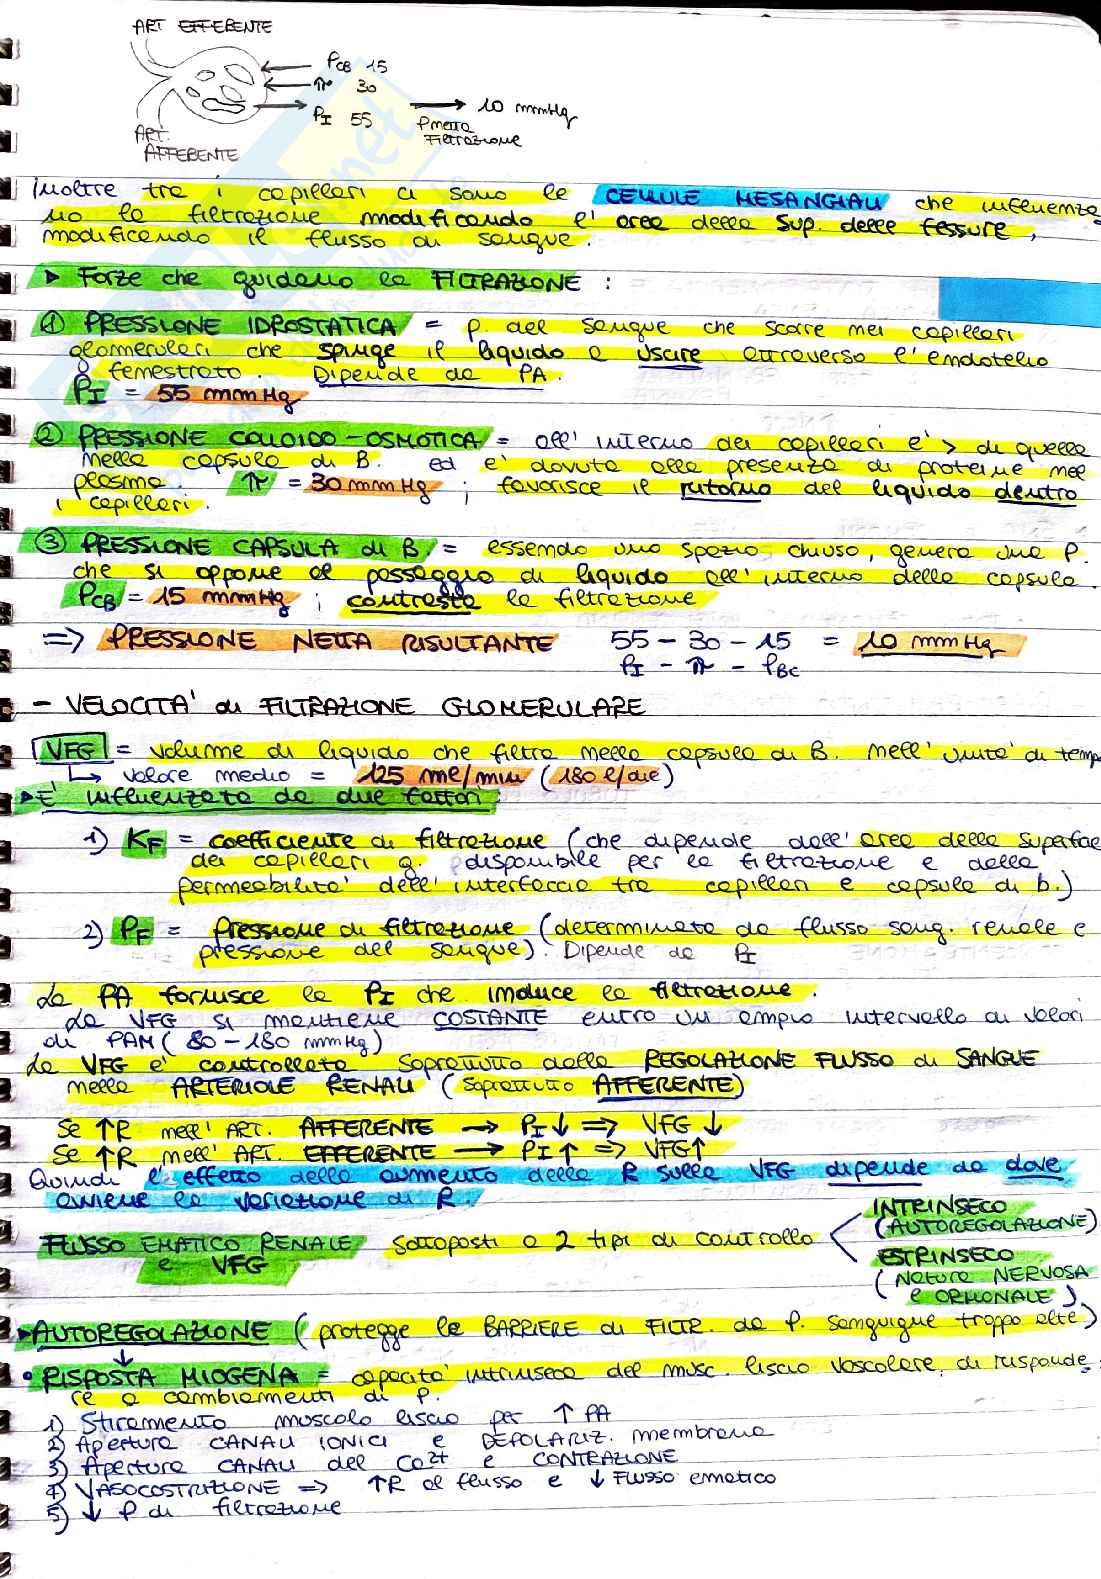 ART EFFERENTE
PCB 15
π 30
PI 55 → 10 mmHg
P netta
Filtrazione
ART.
AFFERENTE
Inoltre tra i capillari ci sono le CELLULE MESANGIALI che influenza
no la filtrazione modificando l'area della sup. delle fessure,
modificando il flusso di sangue.
▶ Forze che guidano la FILTRAZIONE :
① PRESSIONE IDROSTATICA = p. del sangue che scorre nei capillari
glomerulari che spinge il liquido a uscire attraverso l'endotelio
fenestrato. Dipende da PA.
PI = 55 mmHg
② PRESSIONE COLLOIDO-OSMOTICA = all'interno dei capillari è > di quella
nella capsula di B. ed è dovuta alla presenza di proteine nel
plasma. π = 30 mmHg ; favorisce il ritorno del liquido dentro
i capillari.
③ PRESSIONE CAPSULA di B. = essendo uno spazio chiuso, genera una P.
che si oppone al passaggio di liquido all'interno della capsula.
PCB = 15 mmHg ; contrasta la filtrazione
=> PRESSIONE NETTA RISULTANTE 55 - 30 - 15 = 10 mmHg
PI - π - PBC
- VELOCITA' di FILTRAZIONE GLOMERULARE
VFG = volume di liquido che filtra nella capsula di B. nell'unità di temp
↳ valore medio = 125 ml/min (180 l/die)
▶ E' influenzata da due fattori:
1) KF = coefficiente di filtrazione (che dipende dall'area della superfac
dei capillari g. disponibile per la filtrazione e dalla
permeabilità dell'interfaccia tra capillari e capsula di b.)
2) PF = Pressione di filtrazione (determinata da flusso sang. renale e
pressione del sangue). Dipende da PI
La PA fornisce la PI che induce la filtrazione.
La VFG si mantiene COSTANTE entro un ampio intervallo di valori
di PAM (80-180 mmHg)
La VFG è controllata soprattutto dalla REGOLAZIONE FLUSSO di SANGUE
nelle ARTERIOLE RENALI (soprattutto AFFERENTE)
Se ↑R nell'ART. AFFERENTE → PI↓ => VFG ↓
Se ↑R nell'ART. EFFERENTE → PI↑ => VFG↑
Quindi l'effetto dello aumento della R sulla VFG dipende da dove
avviene la variazione di R.
FLUSSO EMATICO RENALE e VFG sottoposti a 2 tipi di controllo
INTRINSECO
(AUTOREGOLAZIONE)
ESTRINSECO
(Natura NERVOSA
e ORMONALE)
▶AUTOREGOLAZIONE (protegge le BARRIERE di FILTR. da P. sanguigne troppo alte)
↓
• RISPOSTA MIOGENA = capacità intrinseca del musc. liscio vascolare di risponde-
re a cambiamenti di P.
1) Stiramento muscolo liscio per ↑ PA
2) Apertura CANALI IONICI e DEPOLARIZ. membrana
3) Apertura CANALI del Ca2+ e CONTRAZIONE
4) VASOCOSTRIZIONE => ↑R al flusso e ↓ Flusso ematico
5) ↓ P di filtrazione